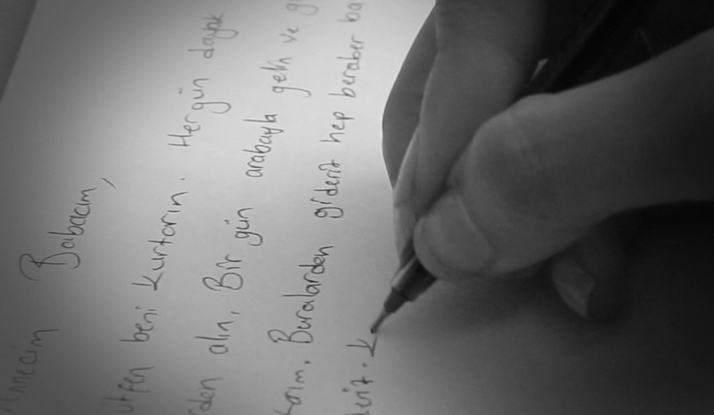 Annecim Babacım,
utfen beni kurtarın. Hergün dayak
den alın, Bir gün arabayla gelin ve g
Buralardan gideriz hep beraber ba
deriz. K